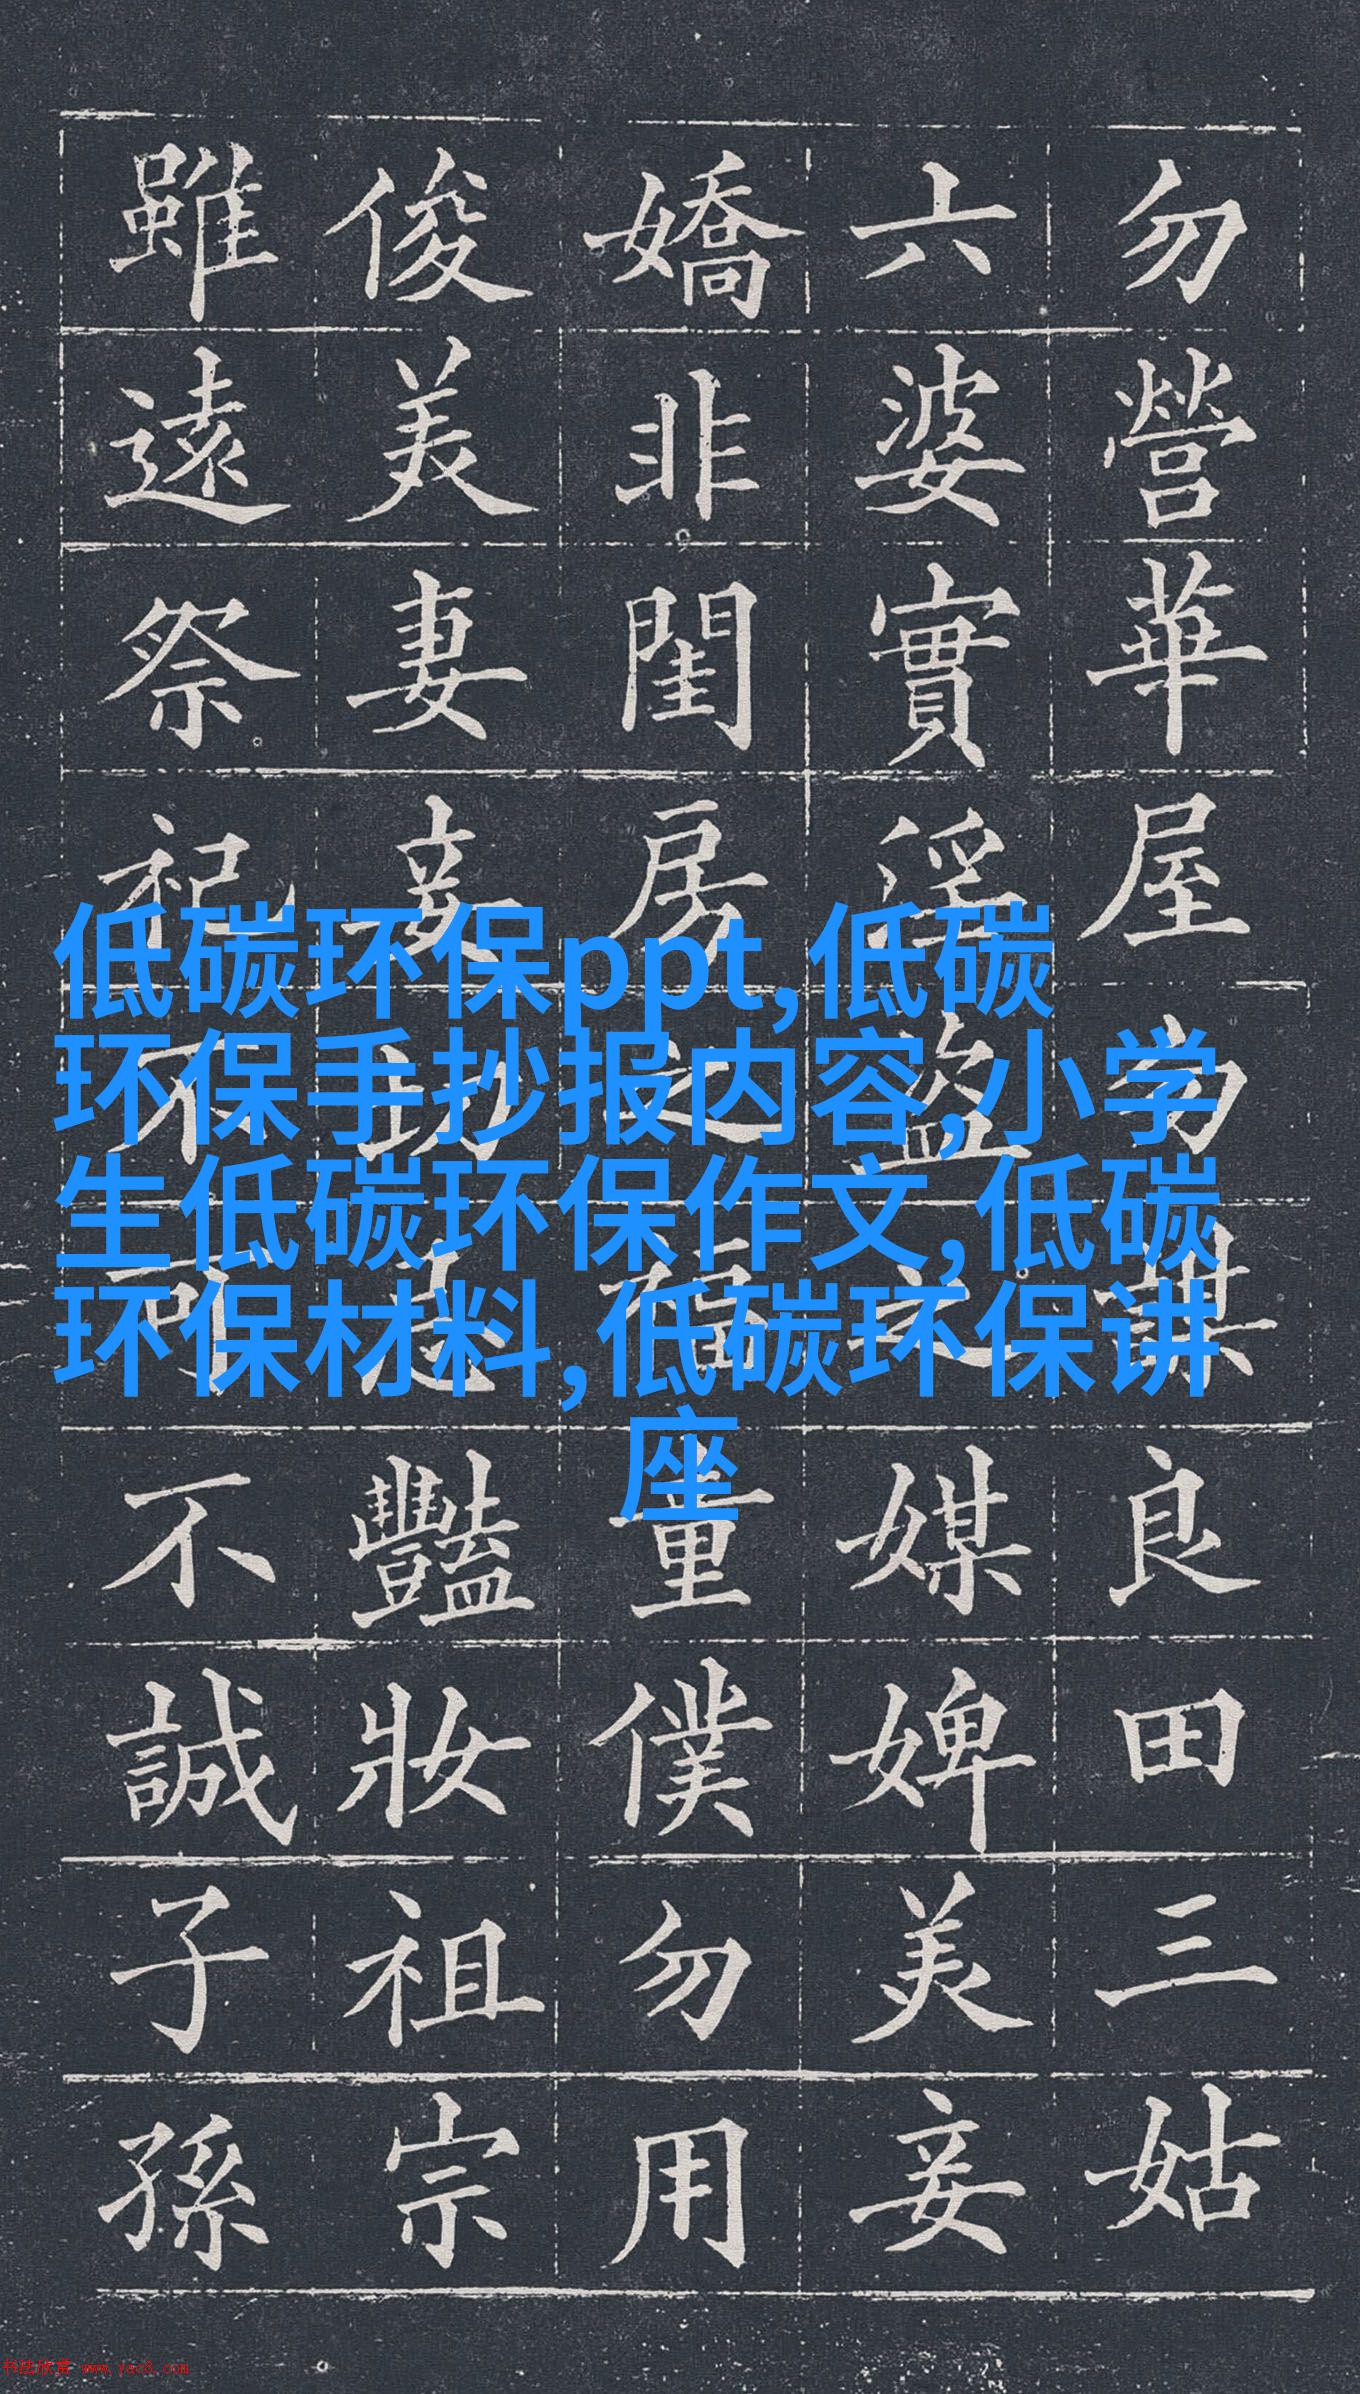 勿營華屋勿謀良田三姑
六婆實淫盜之媒婢美妾
嬌非閨房之福童僕勿用
俊美妻妾切忌豔妝祖宗
雖遠祭祀不可不誠子孫
低碳环保ppt,低碳
环保手抄报内容,小学
生低碳环保作文,低碳
环保材料,低碳环保讲
座
书法欣赏 www.yac8.com